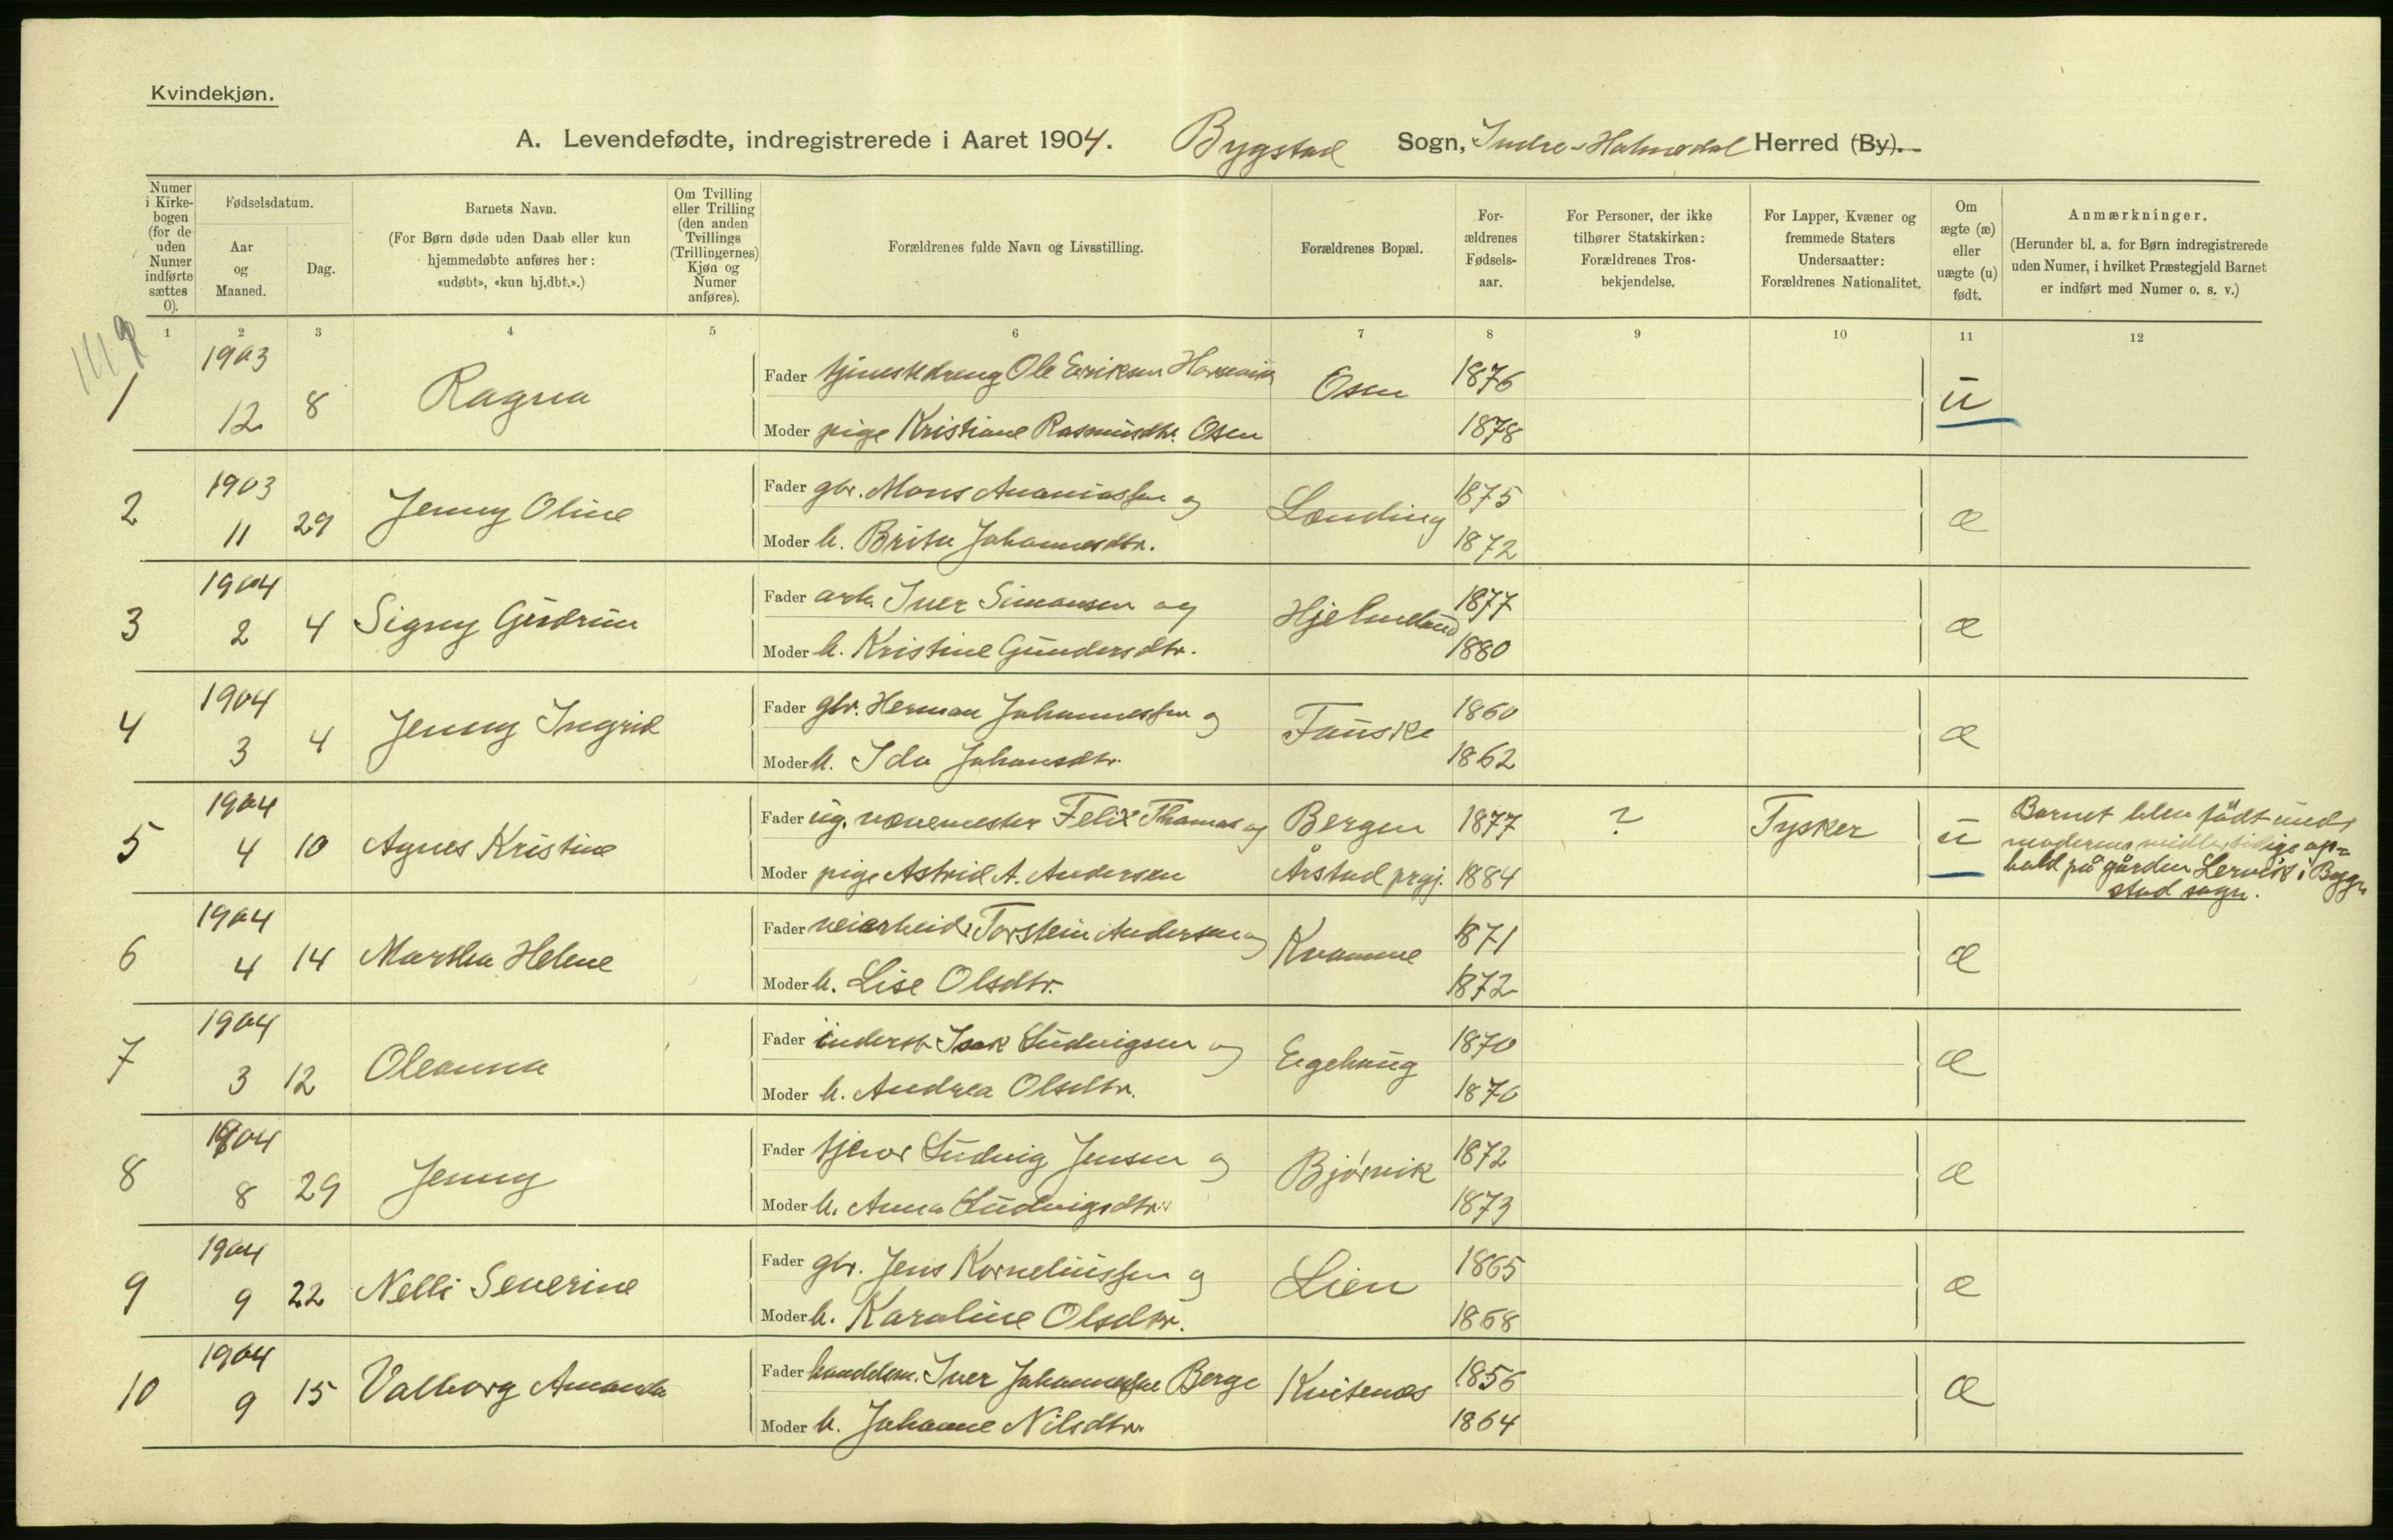 Kvindekjøn.
A. Levendefødte, indregistrerede i Aaret 1904. Bygstad Sogn, Indre-Holmedal Herred (By).
Numer i Kirkebogen (for de uden Numer indførte sættes 0).
Fødselsdatum.
Aar og Maaned.
Dag.
Barnets Navn.
(For Børn døde uden Daab eller kun hjemmedøbte anføres her: «udøbt», «kun hj.dbt.».)
Om Tvilling eller Trilling (den anden Tvillings (Trillingernes) Kjøn og Numer anføres).
Forældrenes fulde Navn og Livsstilling.
Forældrenes Bopæl.
Forældrenes Fødselsaar.
For Personer, der ikke tilhører Statskirken: Forældrenes Trosbekjendelse.
For Lapper, Kvæner og fremmede Staters Undersaatter: Forældrenes Nationalitet.
Om ægte (æ) eller uægte (u) født.
Anmærkninger.
(Herunder bl. a. for Børn indregistrerede uden Numer, i hvilket Præstegjeld Barnet er indført med Numer o. s. v.)
1 2 3 4 5 6 7 8 9 10 11 12
1 1903 12 8 Ragna
Fader tjenestedreng Ole Eriksen Osen 1876 u
Moder pige Kristiane Rasmusdtr. Osen 1878
2 1903 11 29 Jenny Oline
Fader gbr. Mons Ananiassen og Londing 1875 æ
Moder h. Brita Johannesdtr. 1872
3 1904 2 4 Signy Gudrun
Fader arb. Iver Simonsen og Hjelmeland 1877 æ
Moder h. Kristine Gundersdtr. 1880
4 1904 3 4 Jenny Ingrid
Fader gbr. Herman Johannessen og Fauske 1860 æ
Moder h. Ida Johansdtr. 1862
5 1904 4 10 Agnes Kristine
Fader ug. vævemester Felix Thomas og Bergen 1877 ? Tysker u
Moder pige Astrid A. Andersen Årstad prgj. 1884
Barnet blev født under
moderens midlertidige op-
hold på gården Lervik i Byg-
stad sogn.
6 1904 4 14 Martha Helene
Fader veiarbeider Torstein Andersen og Kvamme 1871 æ
Moder h. Lise Olsdtr. 1872
7 1904 3 12 Oleanna
Fader inderst Isak Ludvigsen og Eigehaug 1870 æ
Moder h. Andrea Olsdtr. 1870
8 1904 8 29 Jenny
Fader Ludvig Jensen og Bjørvik 1872 æ
Moder h. Anna Ludvigsdtr. 1873
9 1904 9 22 Nelli Severine
Fader gbr. Jens Korneliussen og Lien 1865 æ
Moder h. Karoline Olsdtr. 1868
10 1904 9 15 Valborg Amanda
Fader handelsm. Iver Johannessen Berge Kvitenes 1856 æ
Moder h. Johanne Nilsdtr. 1864